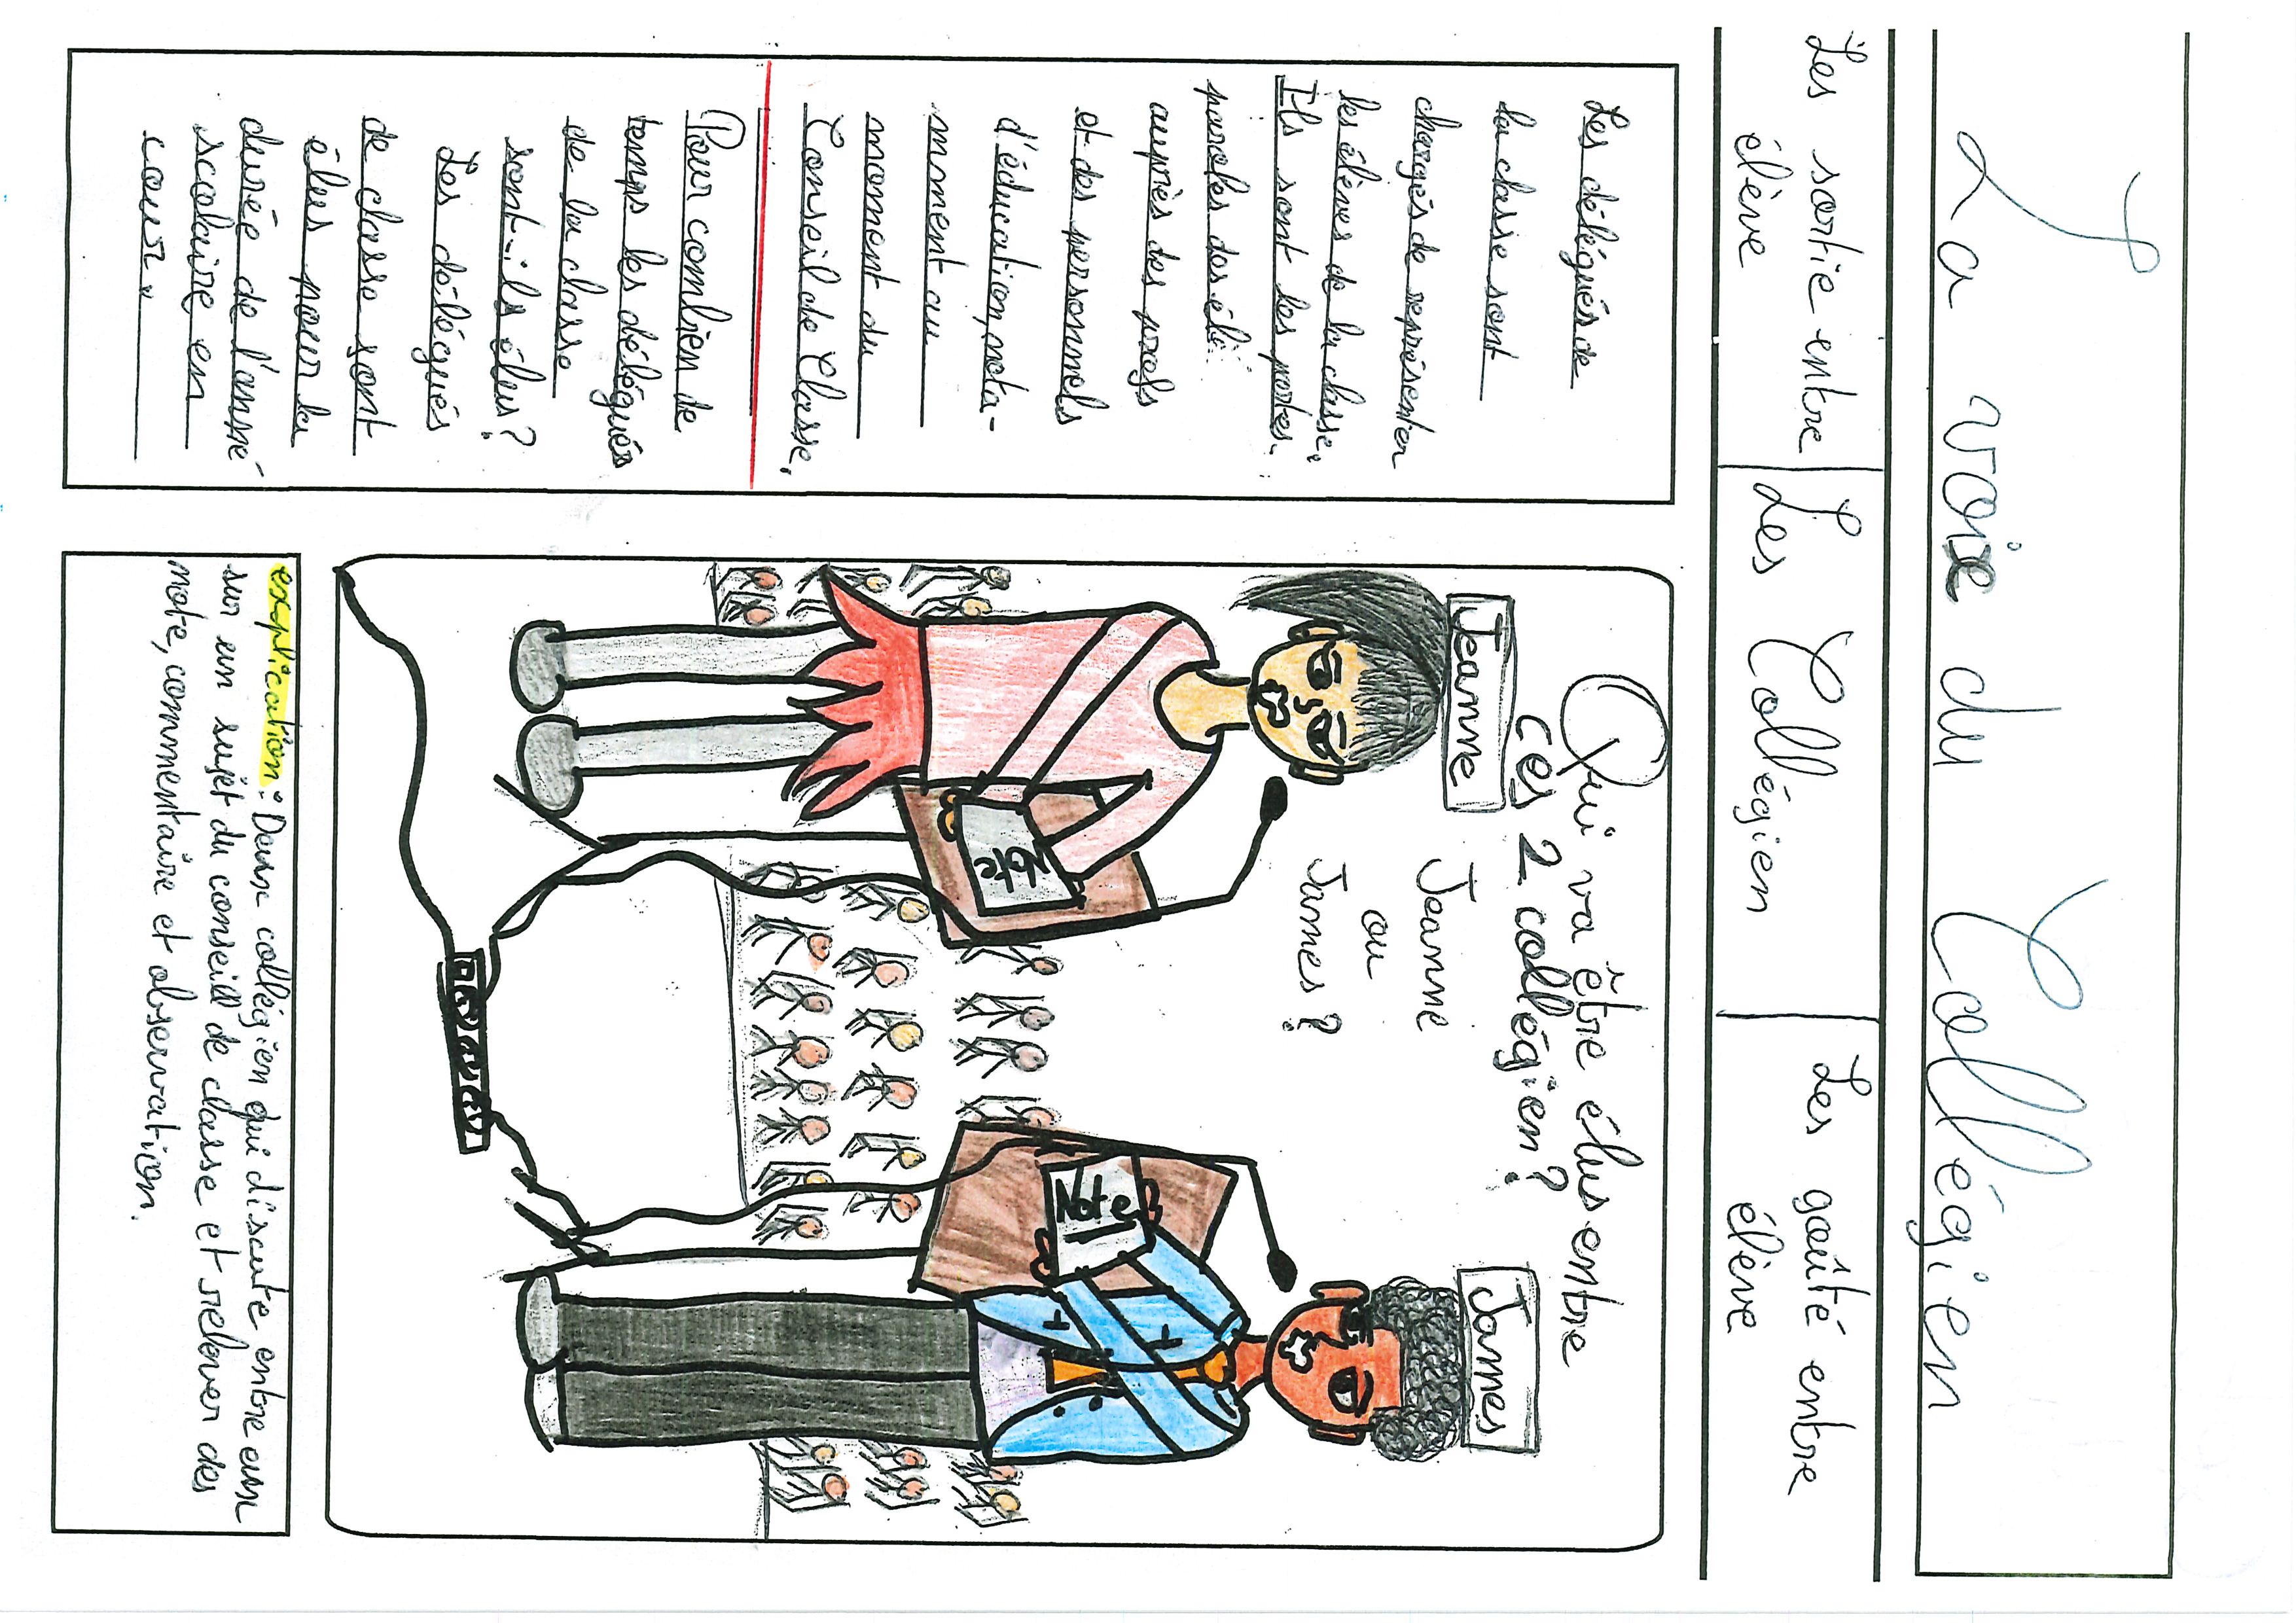 La voix du Collégien
Les sortie entre
élève
Les Collégien
Les gaîté entre
élève
Les délégués de
la classe sont
chargés de représenter
les élèves de la classe.
Ils sont les portes-
paroles des élé
auprès des profs
et des personnels
d'éducation, nota-
mment au
moment du
Conseil de Classe,
Pour combien de
temps les délégués
de la classe
sont-ils élus?
Les délégués
de classe sont
élus pour la
durée de l'anné
scolaire en
cour.
Qui va être élus entre
ces 2 collégien?
Jeanne
ou
James?
Jeanne
James
Note
Note
explication: Deux collégien qui discute entre eux
sur un sujet du conseil de classe et relever des
note, commentaire et observation.